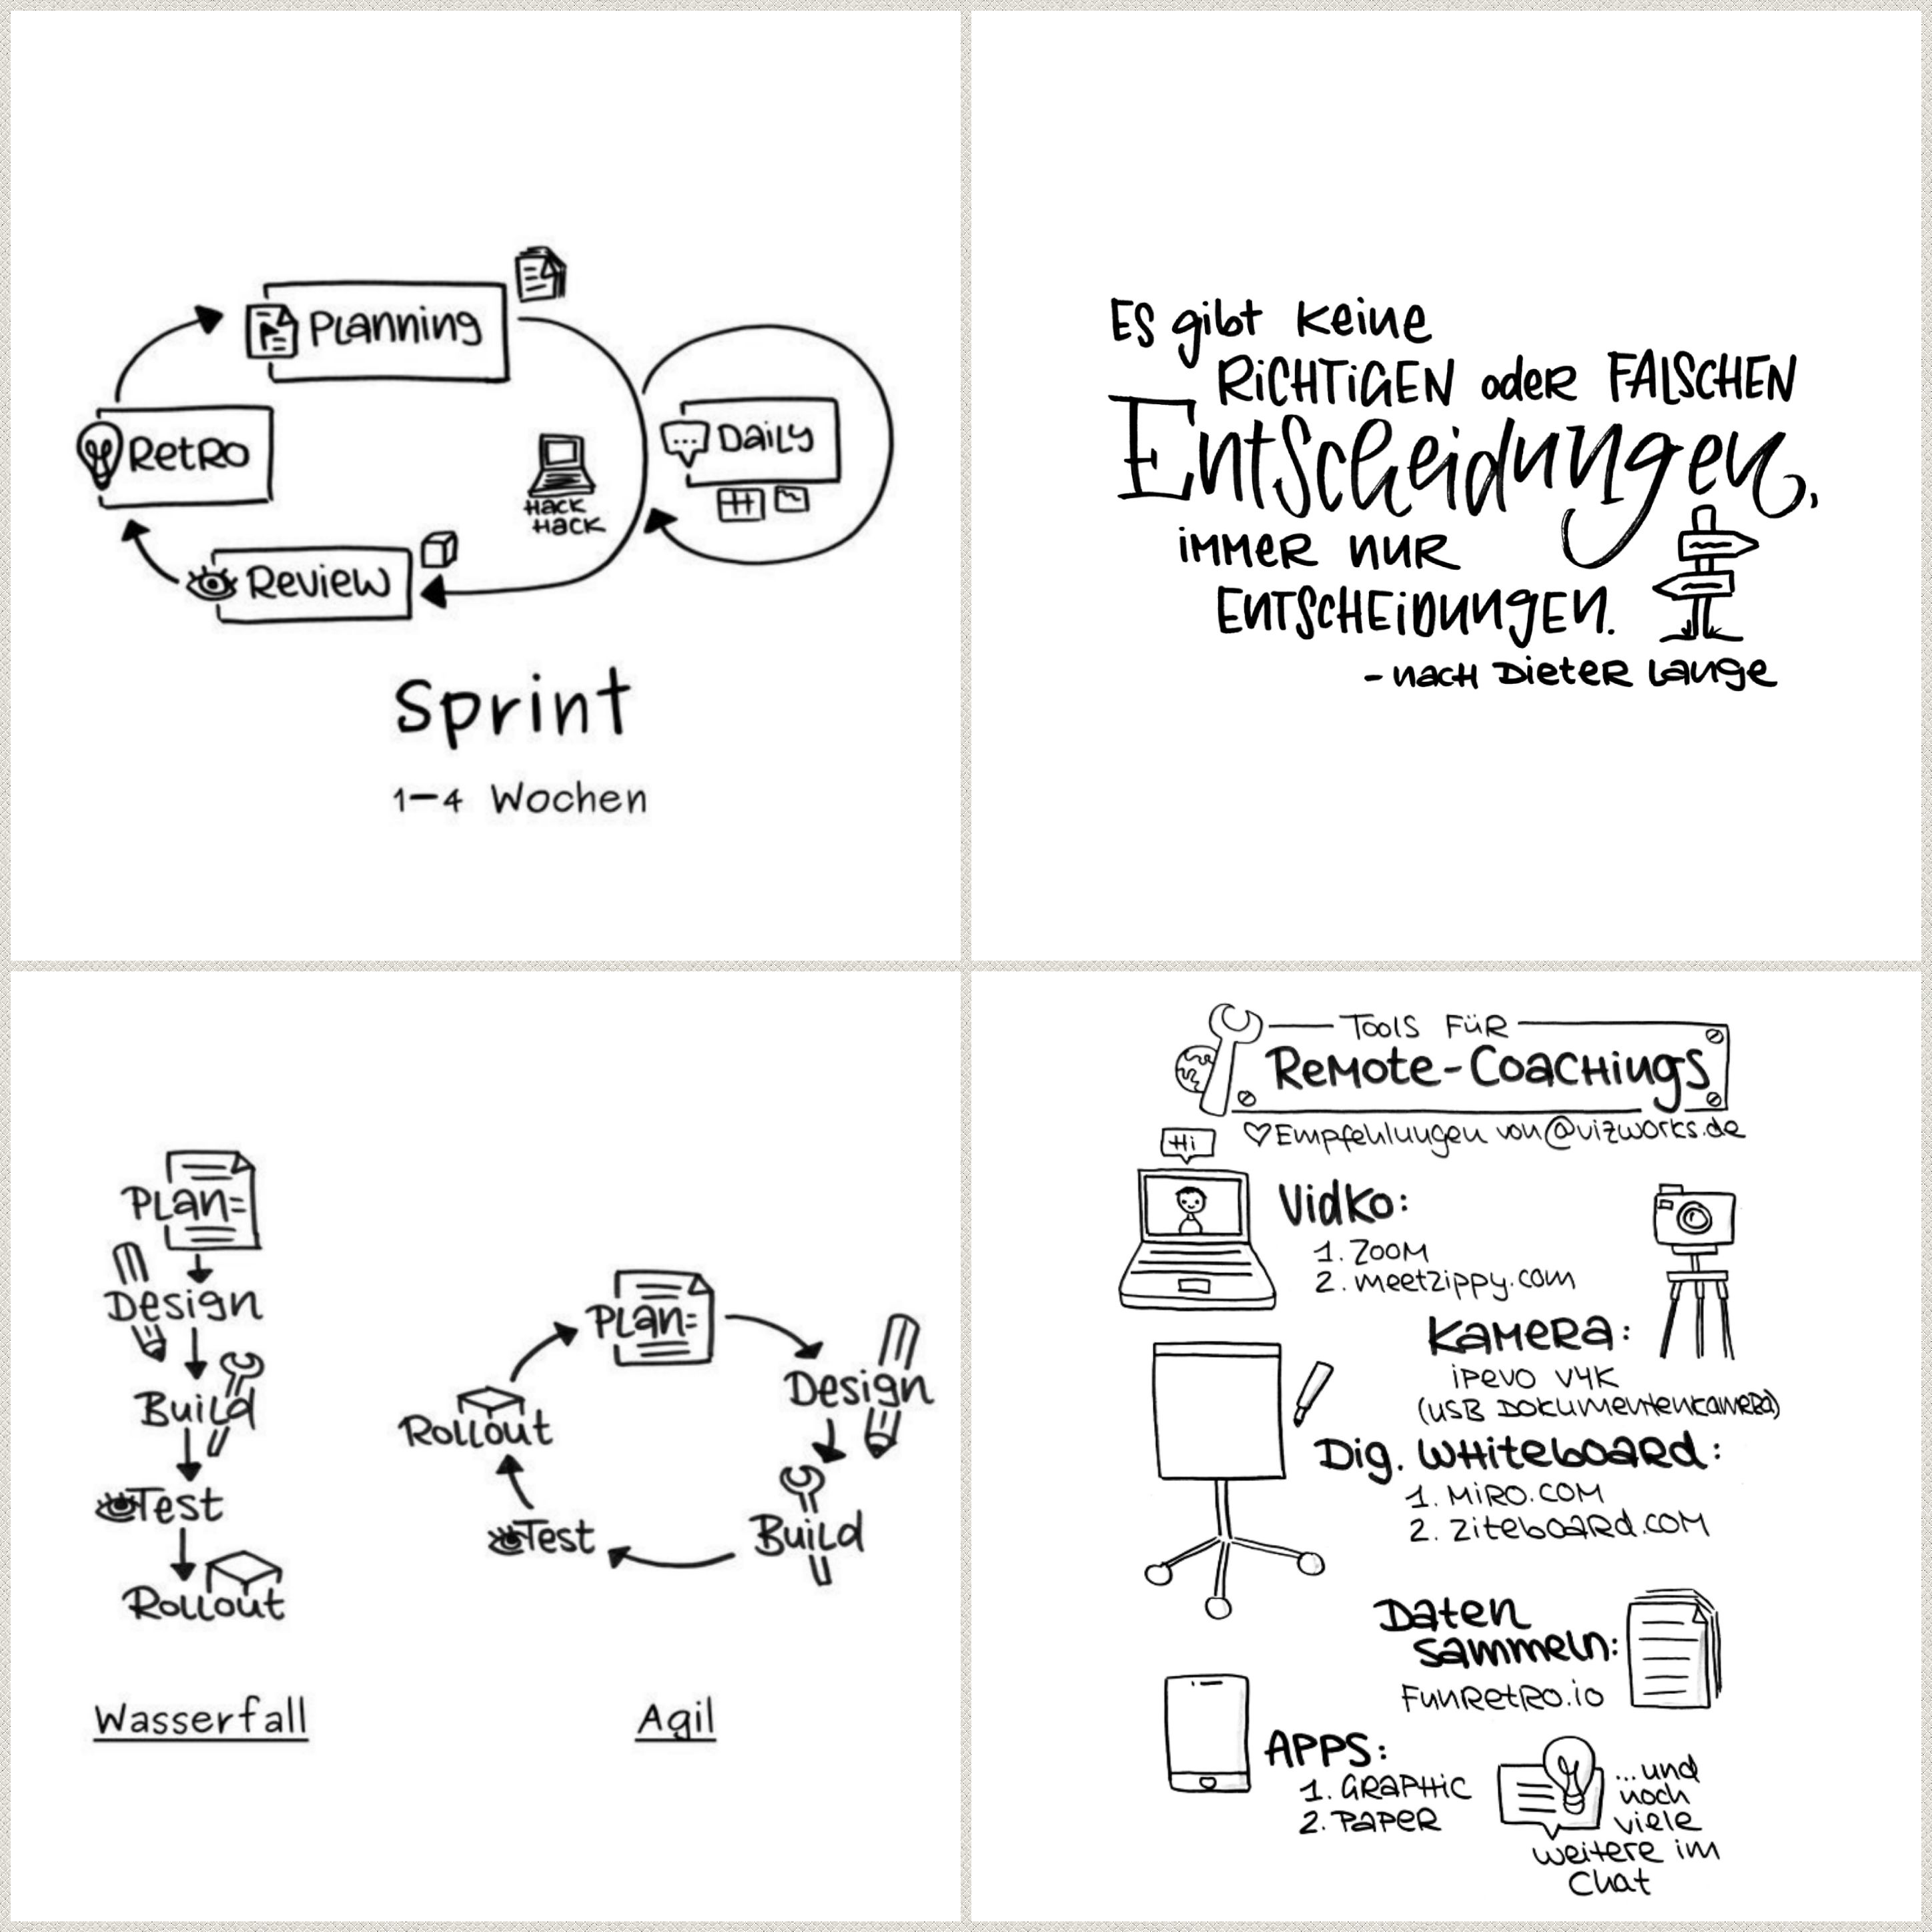 Planning
Retro
Daily
Hack
Hack
Review
Sprint
1-4 Wochen
Es gibt keine
RiCHTiGEN oder FALSCHEN
Entscheidungen,
immer nur
ENTSCHEiDUNgEN.
- nach Dieter Lange
Plan
Design
Build
Test
Rollout
Wasserfall
Plan
Design
Build
Test
Rollout
Agil
Tools für
Remote-Coachings
Empfehlungen von @vizworks.de
Hi
Vidko:
1. Zoom
2. meetzippy.com
Kamera:
ipevo V4K
(USB Dokumentenkamera)
Dig. Whiteboard:
1. Miro.com
2. Ziteboard.com
Daten
sammeln:
FunRetro.io
APPS:
1. Graphic
2. Paper
...und
noch
viele
weitere im
Chat